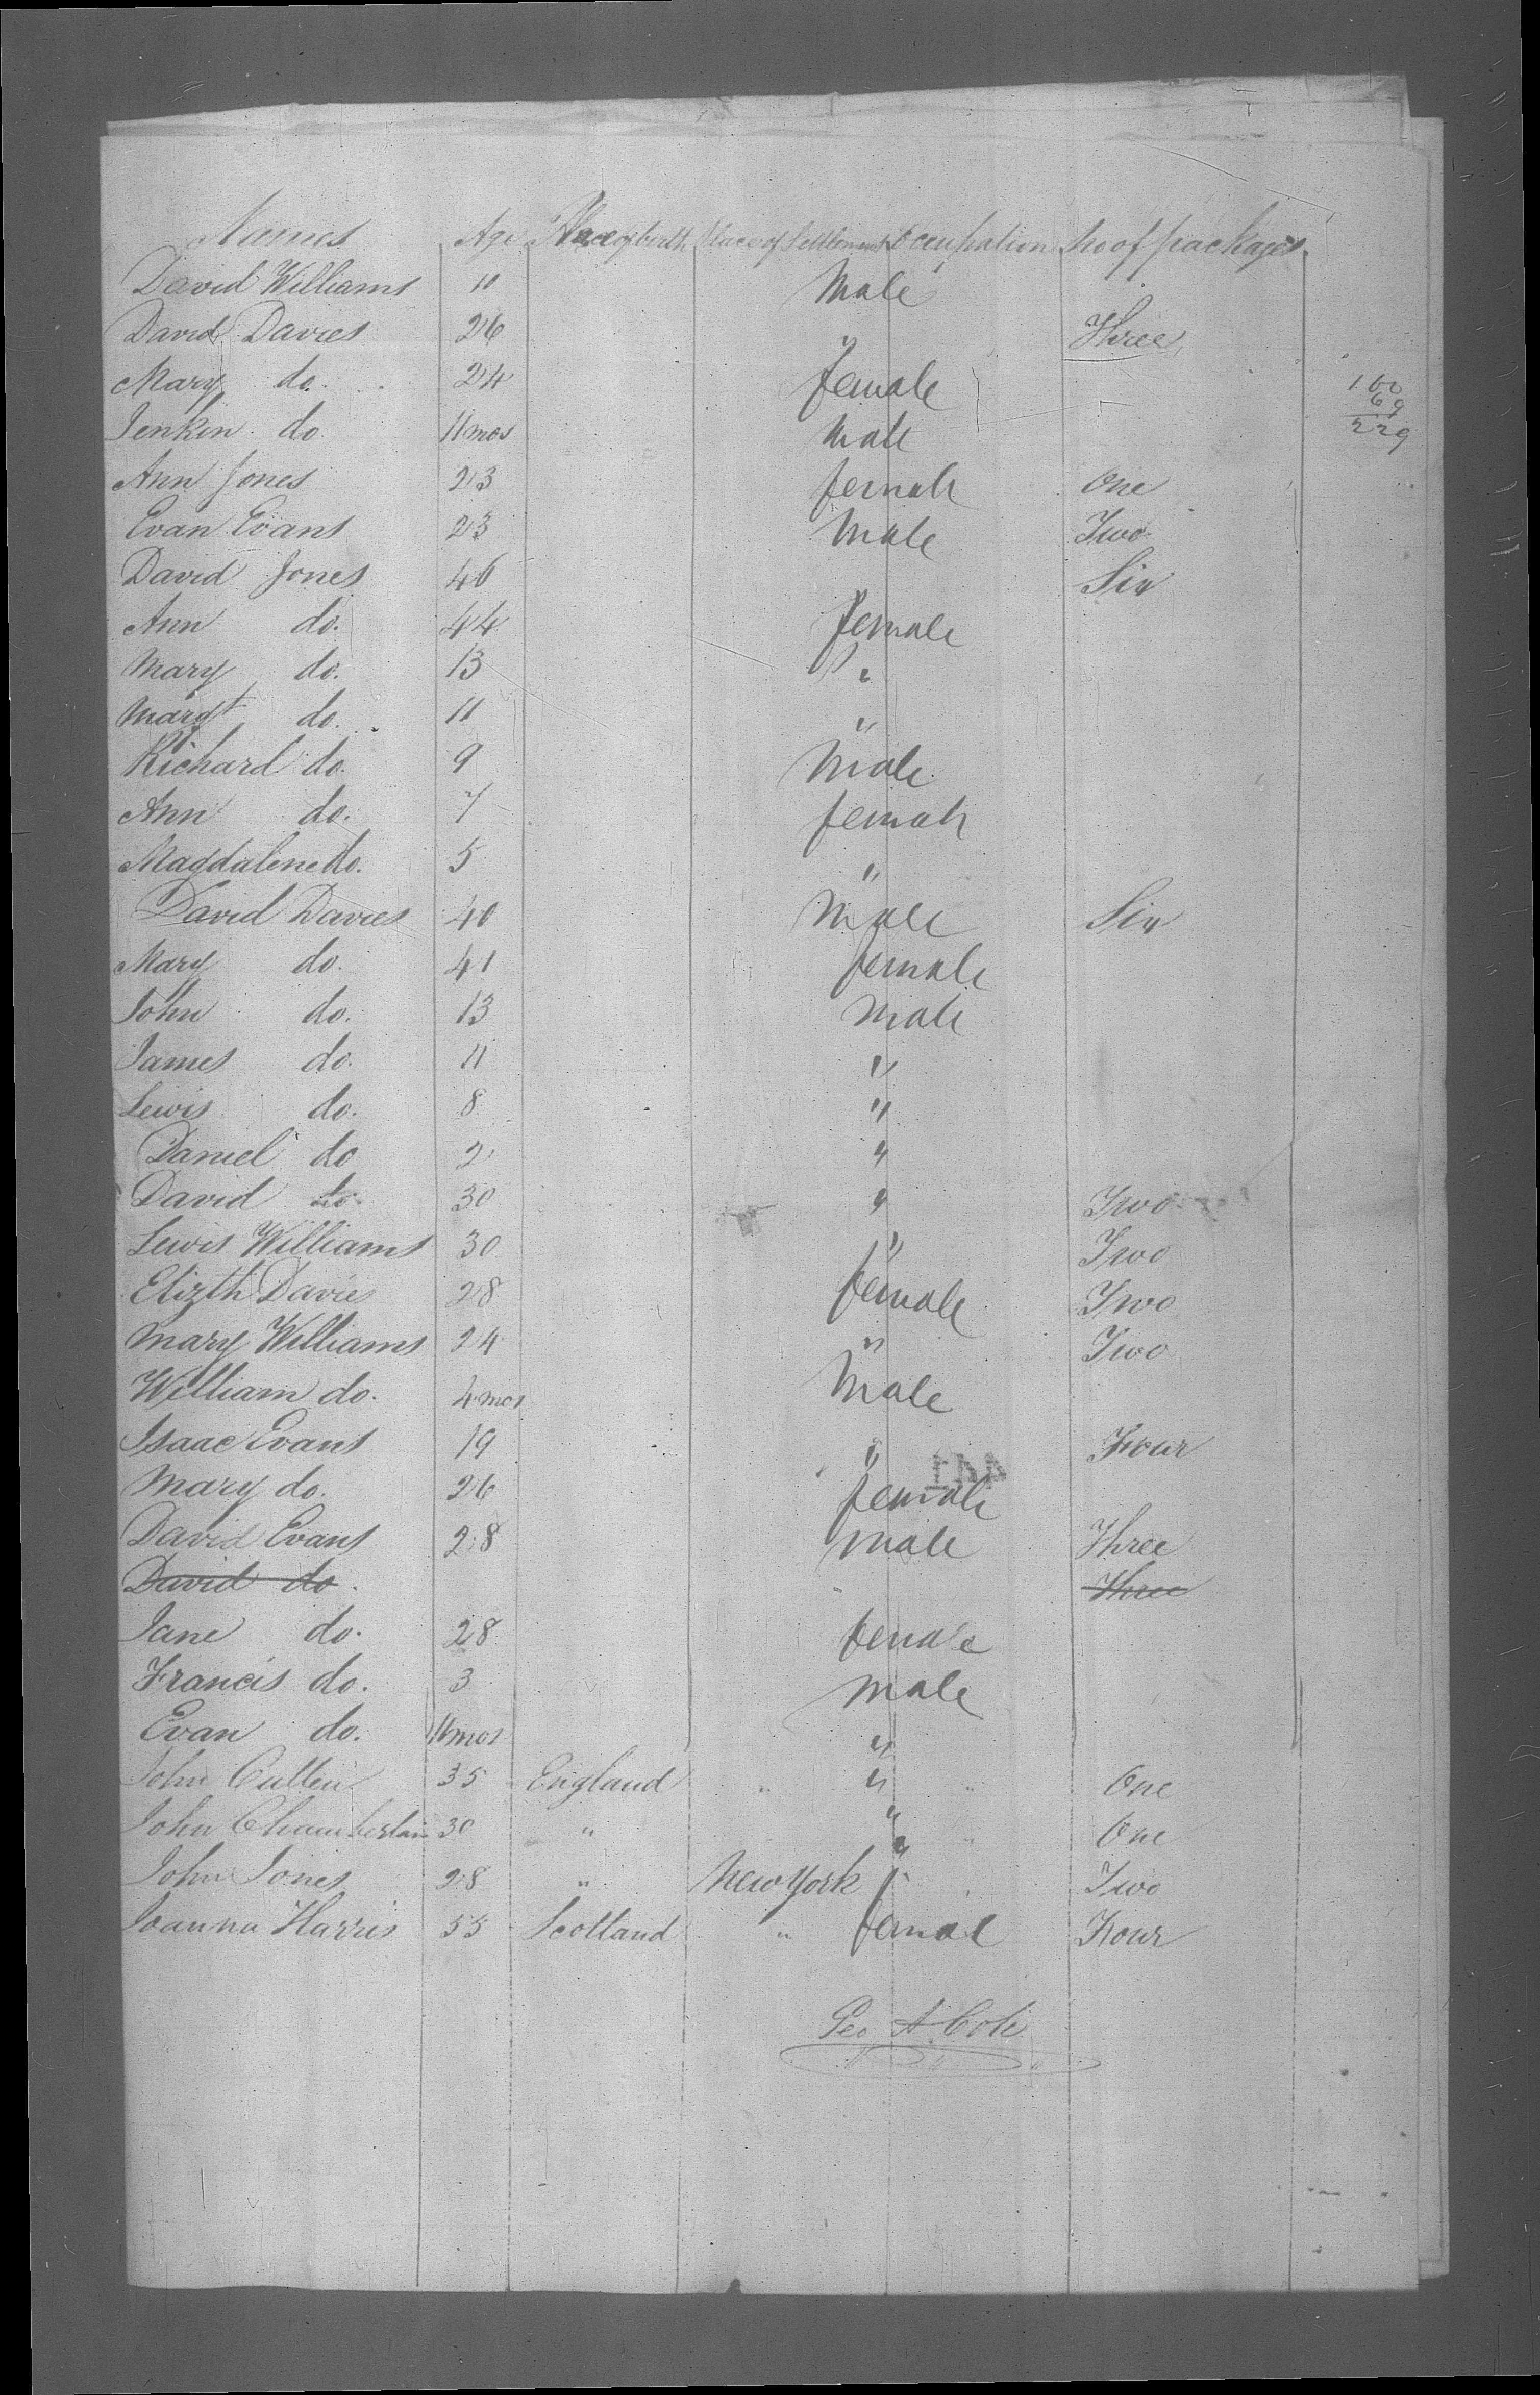 Names Age Place of birth Place of Settlement Occupation No of packages
David Williams 10 Male
David Davies 26 " Three
Mary do. 24 female
Jenkin do. 11 mos male
Ann Jones 23 female One
Evan Evans 23 Male Two
David Jones 46 Six
Ann do. 44 female
Mary do. 13 "
Margt do. 11 "
Richard do. 9 Male
Ann do. 7 female
Magdalene do. 5 "
David Davies 40 Male Six
Mary do. 41 female
John do. 13 male
James do. 11 "
Lewis do. 8 "
Daniel do 2 "
David do. 30 " Two
Lewis Williams 30 " Two
Elizth Davies 28 female Two
Mary Williams 24 " Two
William do. 4 mos Male
Isaac Evans 19 " Four
Mary do. 26 female
David Evans 28 male Three
David do. Three
Jane do. 28 female
Francis do. 3 male
Evan do. 11 mos "
John Cullen 35 England " " " One
John Chamberlain 30 " " " One
John Jones 28 " New York " Two
Joanna Harris 55 Scotland " female Four
Geo A Cole
160
69
229
441